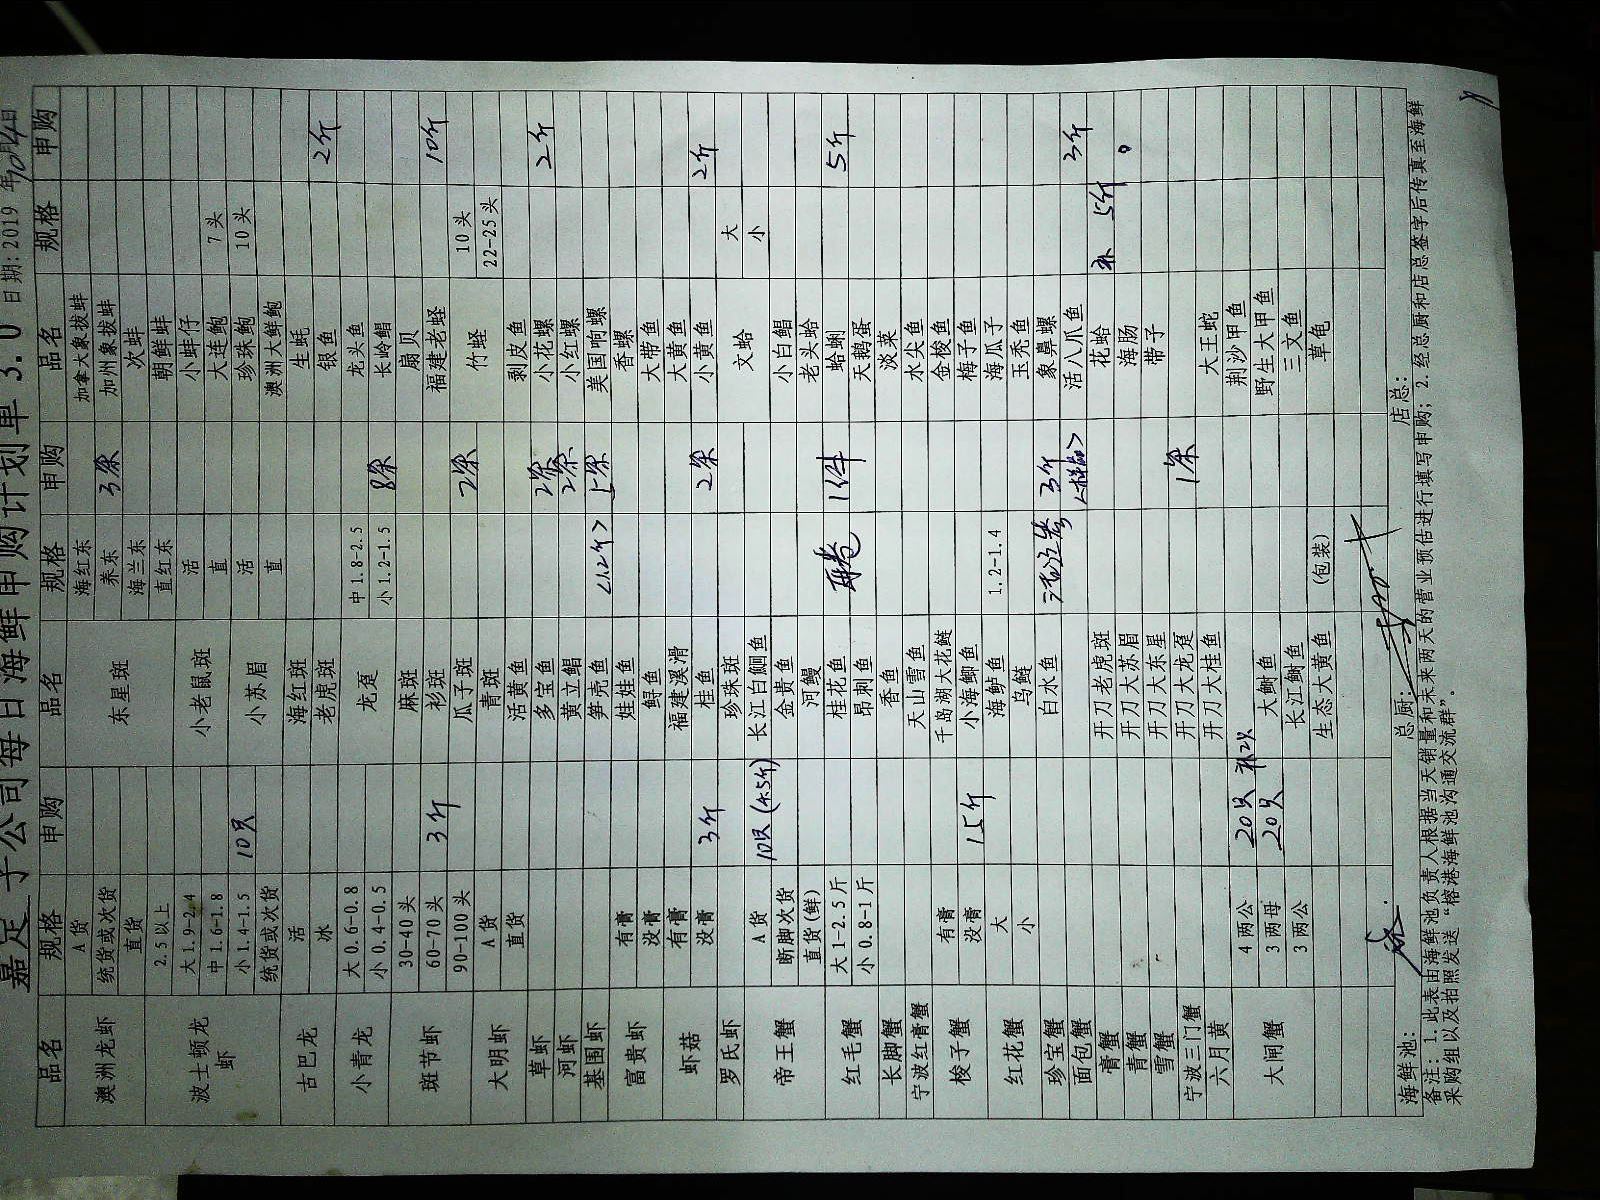 嘉定子公司每日海鲜申购计划单 3.0 日期:2019年10月4日
品名 规格 申购 品名 规格 申购 品名 规格 申购
澳洲龙虾 A货 东星斑 海红东 加拿大象拔蚌
统货或次货 养东 3条 加州象拔蚌
直货 海兰东 次蚌
波士顿龙虾 2.5以上 直红东 朝鲜蚌
大1.9-2.4 小老鼠斑 活 小蚌仔
中1.6-1.8 直 大连鲍 7头
小1.4-1.5 10只 小苏眉 活 珍珠鲍 10头
统货或次货 直 澳洲大鲜鲍
古巴龙 活 海红斑 生蚝
冰 老虎斑 银鱼 2斤
小青龙 大0.6-0.8 龙趸 中1.8-2.5 龙头鱼
小0.4-0.5 小1.2-1.5 8条 长岭鲳
斑节虾 30-40头 麻斑 扇贝
60-70头 3斤 杉斑 福建老蛏 10斤
90-100头 瓜子斑 2条 竹蛏 10头
大明虾 A货 青斑 22-25头
直货 活黄鱼 剥皮鱼
草虾 多宝鱼 2条 小花螺 2斤
河虾 黄立鲳 2条 小红螺
基围虾 笋壳鱼 <1.2斤> 5条 美国响螺
富贵虾 有膏 娃娃鱼 香螺
没膏 鲟鱼 大带鱼
虾菇 有膏 福建溪滑 大黄鱼
没膏 3斤 桂鱼 2条 小黄鱼 2斤
罗氏虾 珍珠斑 文蛤 大
帝王蟹 A货 10只 长江白鮰鱼 小
断脚次货 金贵鱼 小白鲳
直货(鲜) 河鳗 老头蛤
红毛蟹 大1-2.5斤 桂花鱼 1件 蛤蜊 5斤
小0.8-1斤 昂刺鱼 天鹅蛋
长脚蟹 香鱼 淡菜
宁波红膏蟹 天山雪鱼 水尖鱼
梭子蟹 有膏 千岛湖大花鲢 金梭鱼
没膏 15斤 小海鲫鱼 梅子鱼
红花蟹 大 海鲈鱼 1.2-1.4 海瓜子
小 乌鲢 玉秃鱼
珍宝蟹 白水鱼 3斤 象鼻螺
面包蟹 活八爪鱼 3斤
膏蟹 开刀老虎斑 花蛤 补 5斤
青蟹 开刀大苏眉 海肠
雪蟹 开刀大东星 带子
宁波三门蟹 开刀大龙趸 1条
六月黄 开刀大桂鱼 大王蛇
大闸蟹 4两公 20只 荆沙甲鱼
3两母 20只 大鲥鱼 野生大甲鱼
3两公 长江鲥鱼 三文鱼
生态大黄鱼 (包装) 草龟
海鲜池: 总厨: 店总:
备注: 1.此表由海鲜池负责人根据当天销量和未来两天的营业预估进行填写申购; 2.经总厨和店总签字后传真至海鲜
采购组以及拍照发送“榕港海鲜池沟通交流群”.